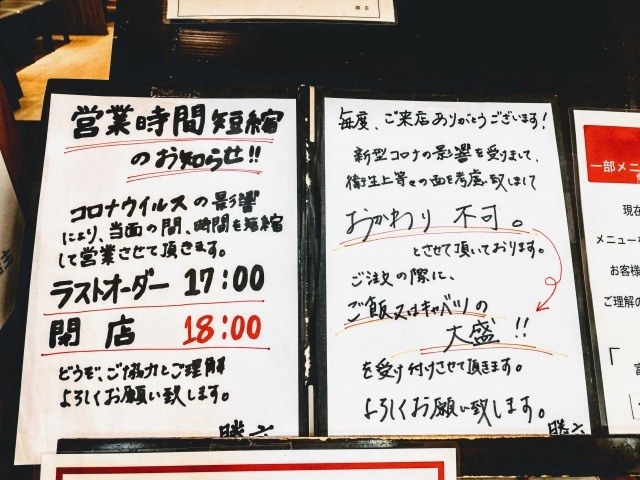 店主
営業時間短縮
のお知らせ!!
コロナウイルスの影響
により、当面の間、時間を短縮
して営業させて頂きます。
ラストオーダー 17:00
閉店 18:00
どうぞ、ご協力とご理解
よろしくお願い致します。
勝六
毎度、ご来店ありがとうございます!
新型コロナの影響を受けまして、
衛生上等々の面を考慮致しまして
おかわり 不可。
とさせて頂いております。
ご注文の際に、
ご飯又はキャベツの
大盛!!
を受け付けさせて頂きます。
よろしくお願い致します。
勝六
一部メニ
現在
メニューを
お客様
ご理解の
「